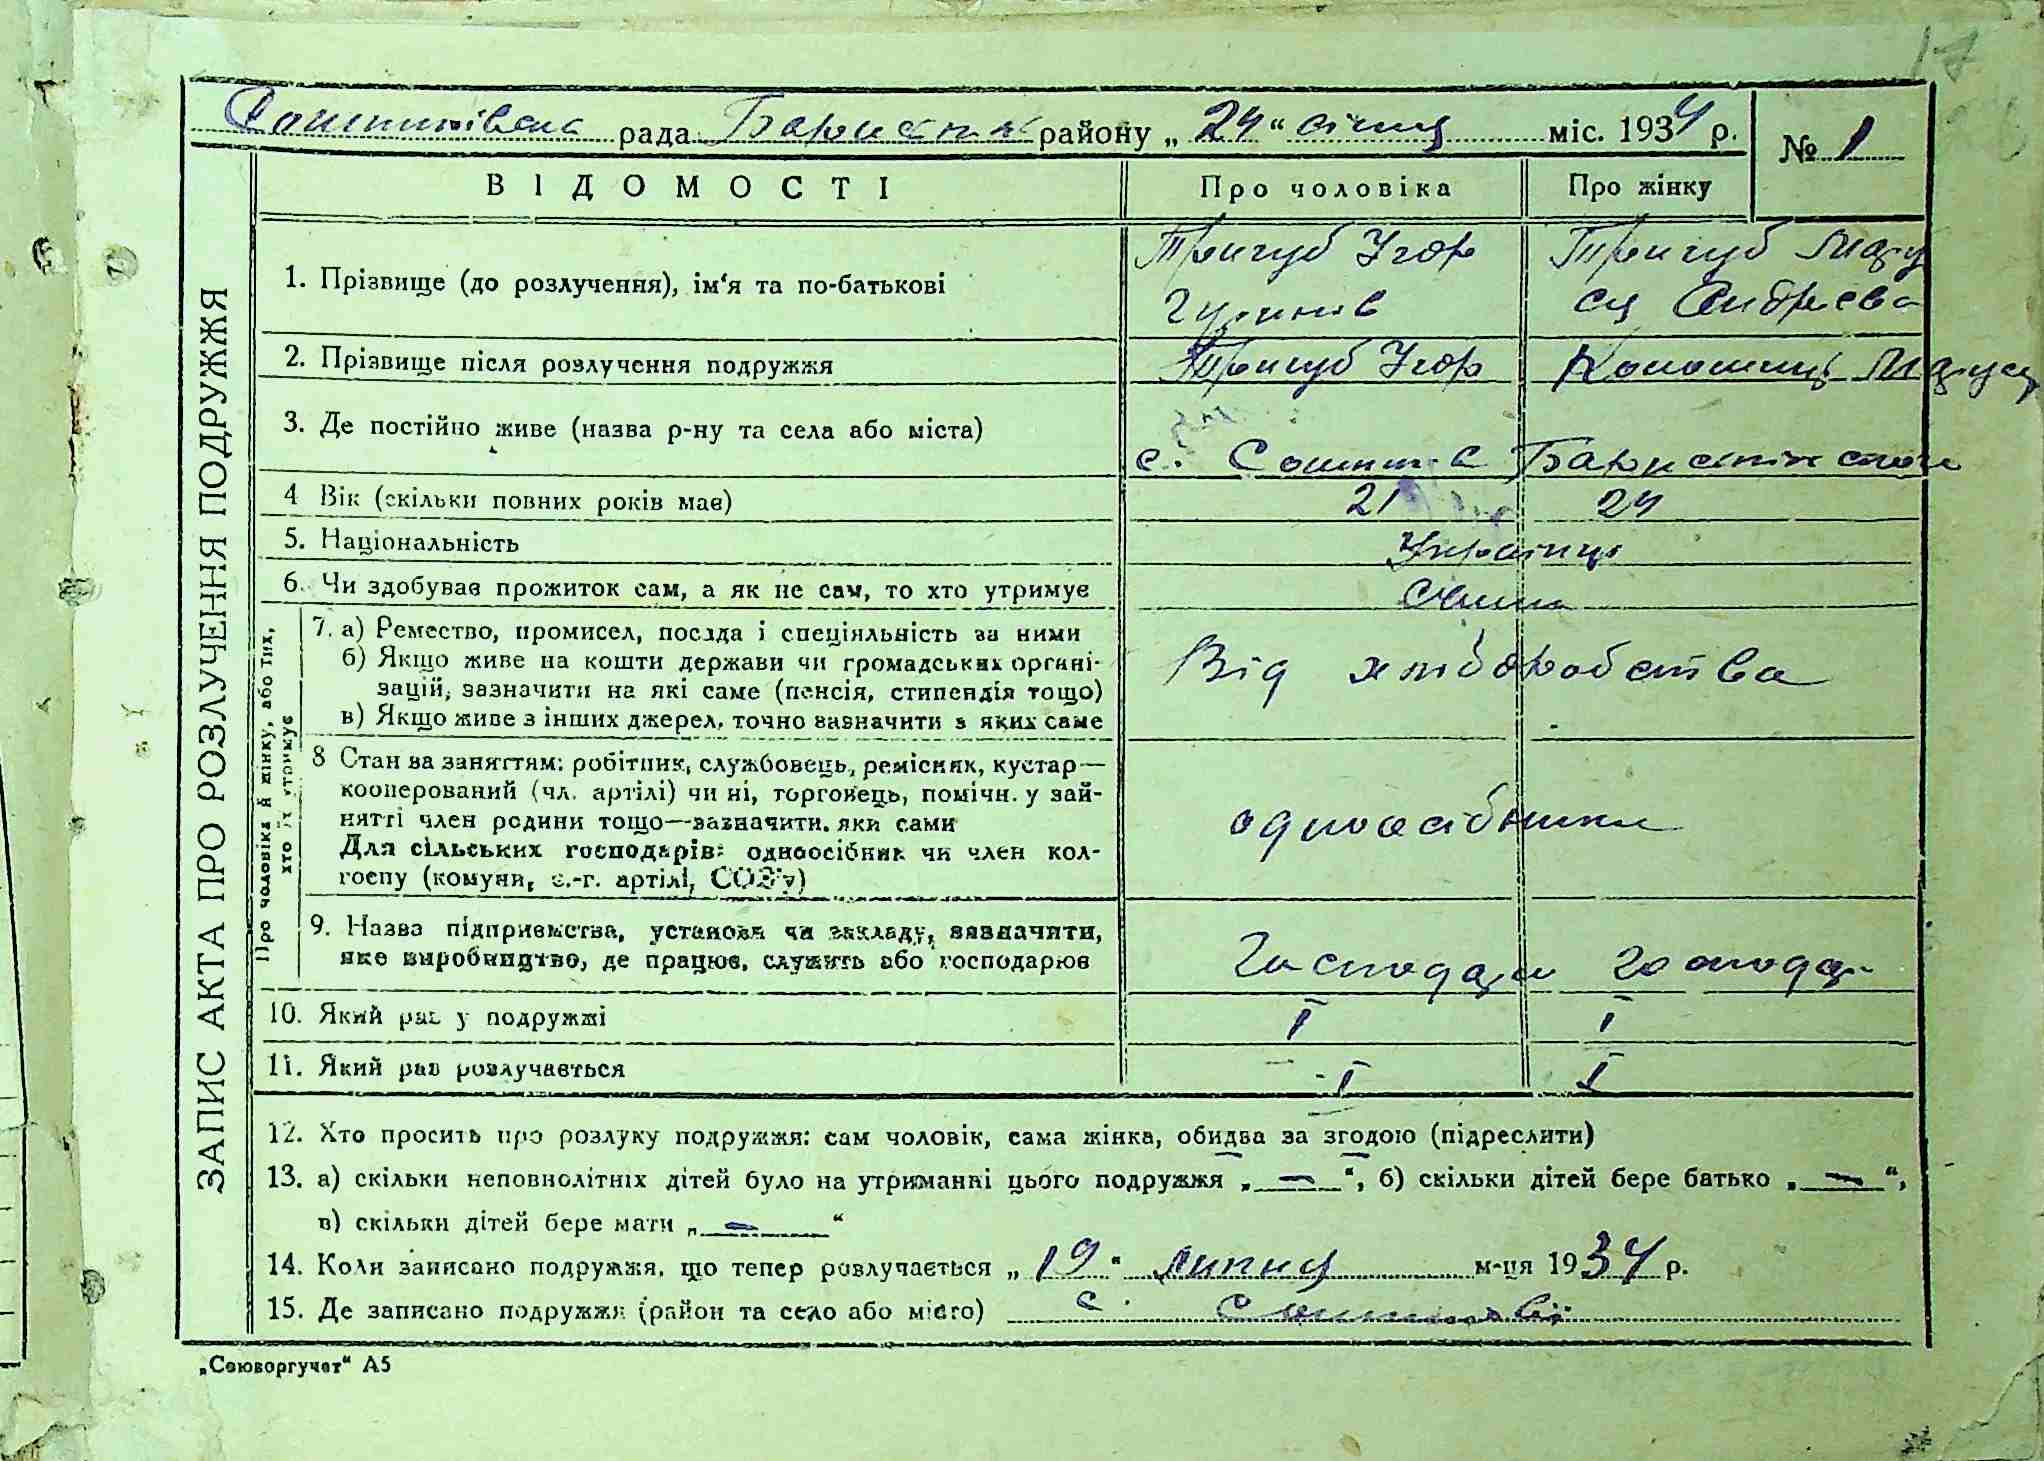 17
рада Борисп района „24“ січня міс. 1934 р. № 1
ВІДОМОСТІ Про чоловіка Про жінку
ЗАПИС АКТА ПРО РОЗЛУЧЕННЯ ПОДРУЖЖЯ
1. Прізвище (до розлучення), ім‘я та по-батькові
Тригуб Ігор Тригуб Мару
ся Андрієва
2. Прізвище після розлучення подружжя Тригуб Ігор Маруся
3. Де постійно живе (назва р-ну та села або міста)
с.
4 Вік (скільки повних років має) 21 24
5. Національність Українці
6. Чи здобував прожиток сам, а як не сам, то хто утримує Сами
Про чоловіка й жінку, або тих,
хто їх утримує
7. а) Ремество, промисел, посада і спеціяльність за ними
б) Якщо живе на кошти держави чи громадських органі-
зацій, зазначити на які саме (пенсія, стипендія тощо)
в) Якщо живе з інших джерел, точно зазначити з яких саме
Від хліборобства
8 Стан за заняттям: робітник, службовець, ремісник, кустар—
кооперований (чл. артілі) чи ні, торговець, помічн. у зай-
нятті член родини тощо—зазначити, яки сами
Для сільських господарів: одноосібник чи член кол-
госпу (комуни, с.-г. артілі, СОЗ'у)
одноосібники
9. Назва підприємства, установи чи закладу, зазначити,
яке виробництво, де працює, служить або господарює
10. Який раз у подружжі I I
11. Який раз розлучається I I
12. Хто просить про розлуку подружжя: сам чоловік, сама жінка, обидва за згодою (підреслити)
13. а) скільки неповнолітніх дітей було на утриманні цього подружжя „—“, б) скільки дітей бере батько „—“,
в) скільки дітей бере мати „—“
14. Коли записано подружжя, що тепер розлучається „19“ липня м-ця 1934 р.
15. Де записано подружжя (район та село або місто) с.
„Союзоргучет“ А5